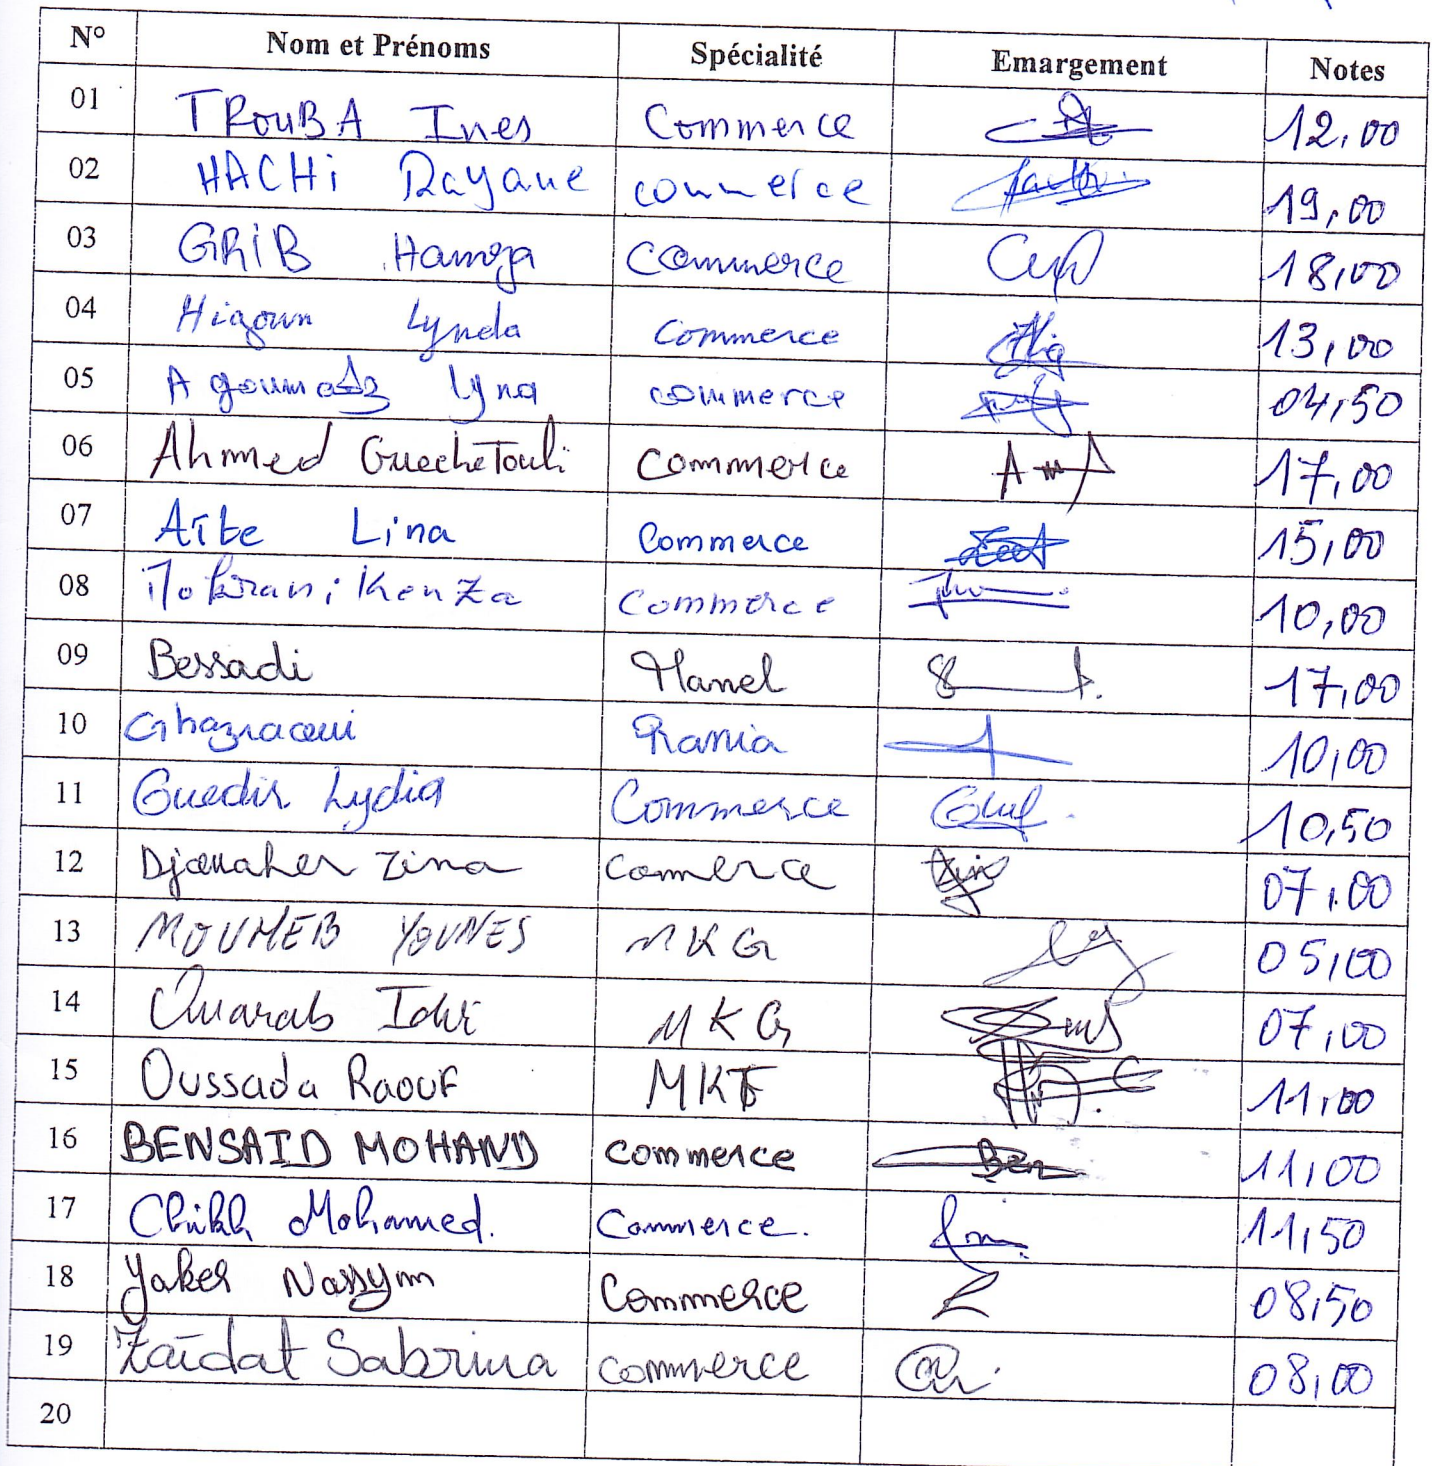 N° Nom et Prénoms Spécialité Emargement Notes
01 TRouBA Ines Commerce 12,00
02 HACHi Rayane commerce 19,00
03 GRiB Hamza Commerce 18,00
04 Higoun Lynda Commerce 13,00
05 Agoumadz Lyna commerce 04,50
06 Ahmed Guechetouli Commerce A 17,00
07 Aïte Lina Commerce 15,00
08 Mokrani Kenza Commerce 10,00
09 Bessadi Manel 17,00
10 Ghazraoui Rania 10,00
11 Guedir Lydia Commerce 10,50
12 Djouaher Zina Comerce 07,00
13 MOUHEB YOUNES MKG 05,00
14 Ouarab Idir MKG 07,00
15 Oussada Raouf MKT 11,00
16 BENSAID MOHAND commerce Ben 11,00
17 Chikh Mohamed. Commerce. 11,50
18 Yaker Nassym Commerce 08,50
19 Zaïdat Sabrina commerce 08,00
20